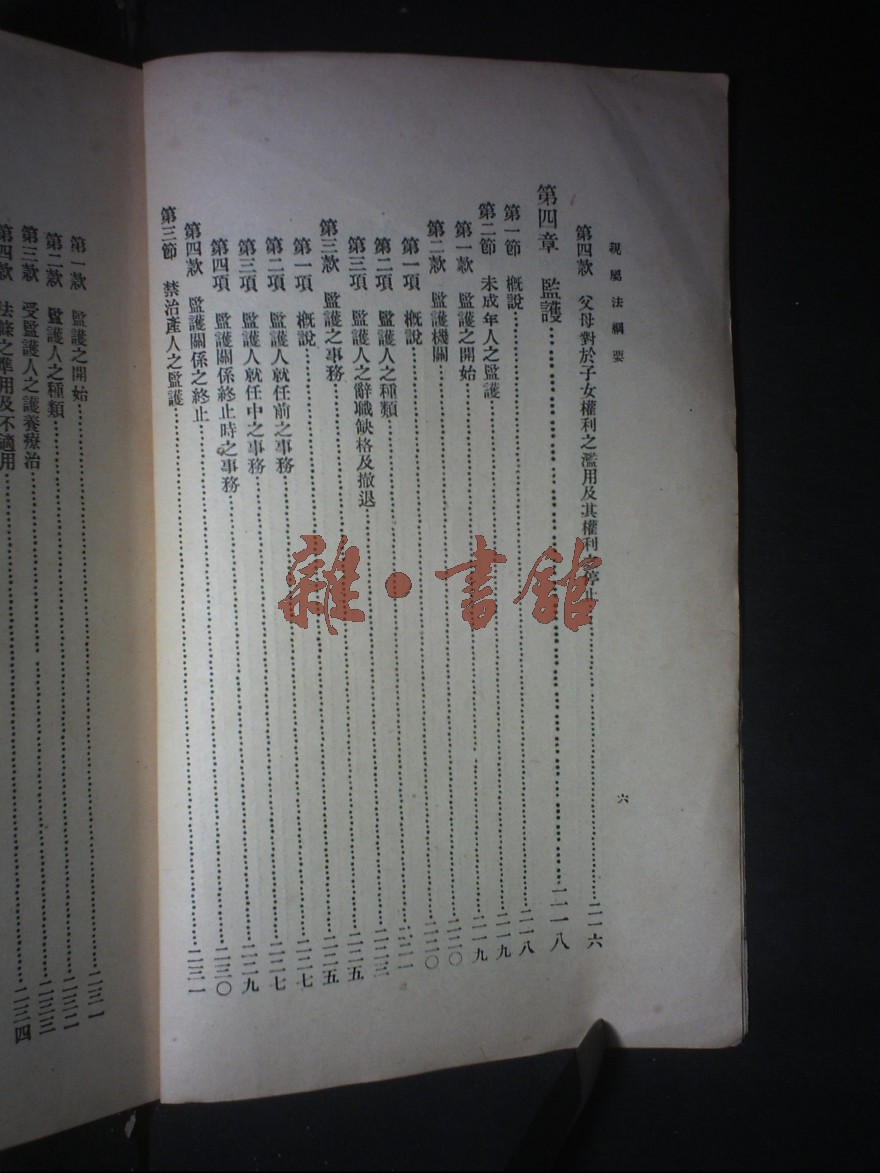 親屬法綱要 六
第四款 父母對於子女權利之濫用及其權利 停止……二一六
第四章 監護……二一八
第一節 概說……二一八
第二節 未成年人之監護……二一九
第一款 監護之開始……二一九
第二款 監護機關……二二〇
第一項 概說……二二〇
第二項 監護人之種類……二二一
第三項 監護人之辭職缺格及撤退……二二三
第三款 監護之事務……二二五
第一項 概說……二二五
第二項 監護人就任前之事務……二二七
第三項 監護人就任中之事務……二二七
第四項 監護關係終止時之事務……二二九
第四款 監護關係之終止……二三〇
第三節 禁治產人之監護……二三一
第一款 監護之開始……二三一
第二款 監護人之種類……二三二
第三款 受監護人之護養療治……二三三
第四款 法條之準用及不適用……二三四
雜·書館